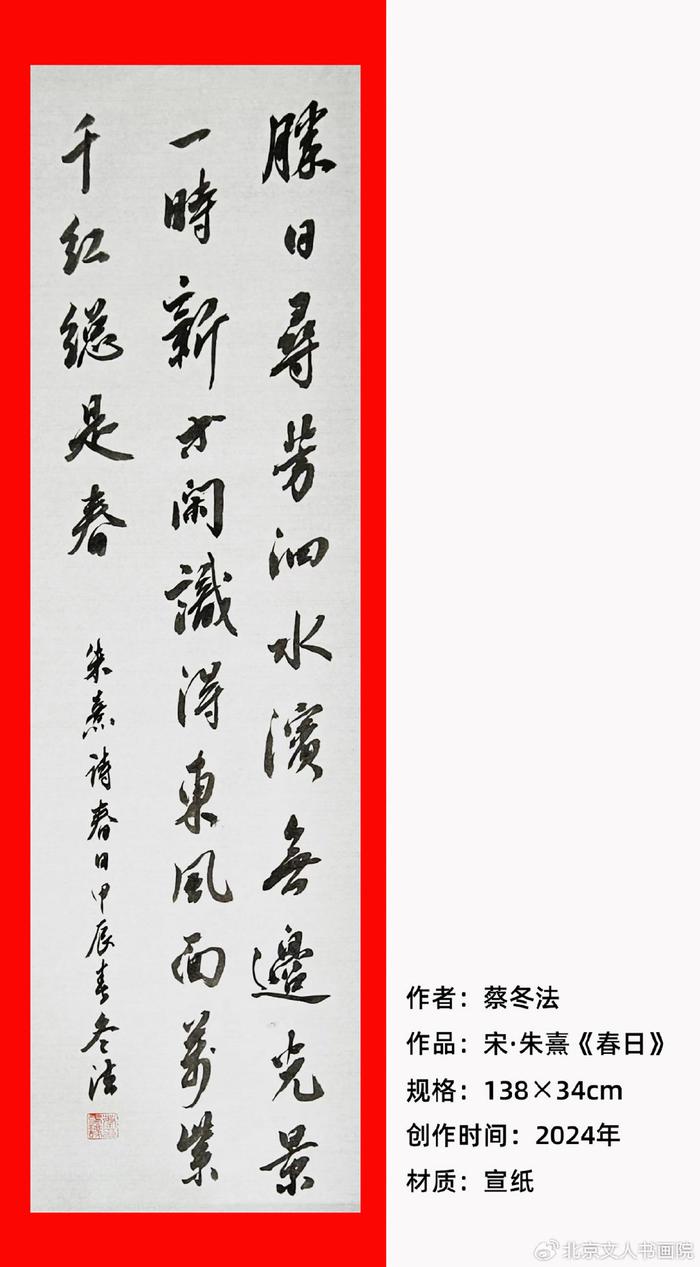 勝日尋芳泗水濱無邊光景
一時新等閑識得東風面萬紫
千紅總是春
朱熹詩春日甲辰春冬法
作者：蔡冬法
作品：宋·朱熹《春日》
规格：138×34cm
创作时间：2024年
材质：宣纸
北京文人书画院